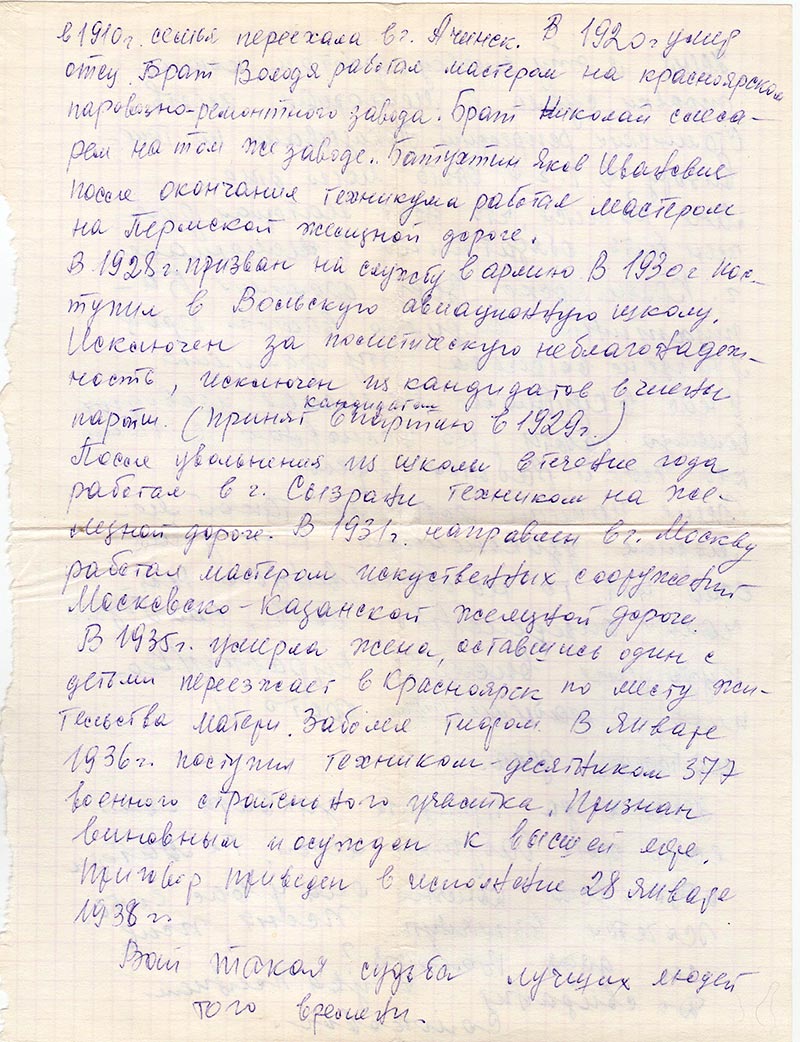 в 1910г. семья переехала в г. Ачинск. В 1920г умер
отец. Брат Володя работал мастером на красноярском
паровозно-ремонтного завода. Брат Николай слеса-
рем на том же заводе. Батухтин Яков Иванович
после окончания техникума работал мастером
на Пермской железной дороге.
В 1928г. призван на службу в армию В 1930г пос-
тупил в Вольскую авиационную школу.
Исключен за политическую неблагонадеж-
ность, исключен из кандидатов в члены
кандидатом
партии. (Принят в партию в 1929г.)
После увольнения из школы в течение года
работал в г. Сызрани техником на же-
лезной дороге. В 1931г. направлен в г. Москву
работал мастером искуственных сооружений
Московско-Казанской железной дороги.
В 1935г. умерла жена, оставшись один с
детьми переезжает в Красноярск по месту жи-
тельства матери. Заболел тифом. В январе
1936г. поступил техником-десятником 377
военного строительного участка. Признан
виновным и осужден к высшей мере.
Приговор приведен в исполнение 28 января
1938г.
Вот такая судьба лучших людей
того времени.